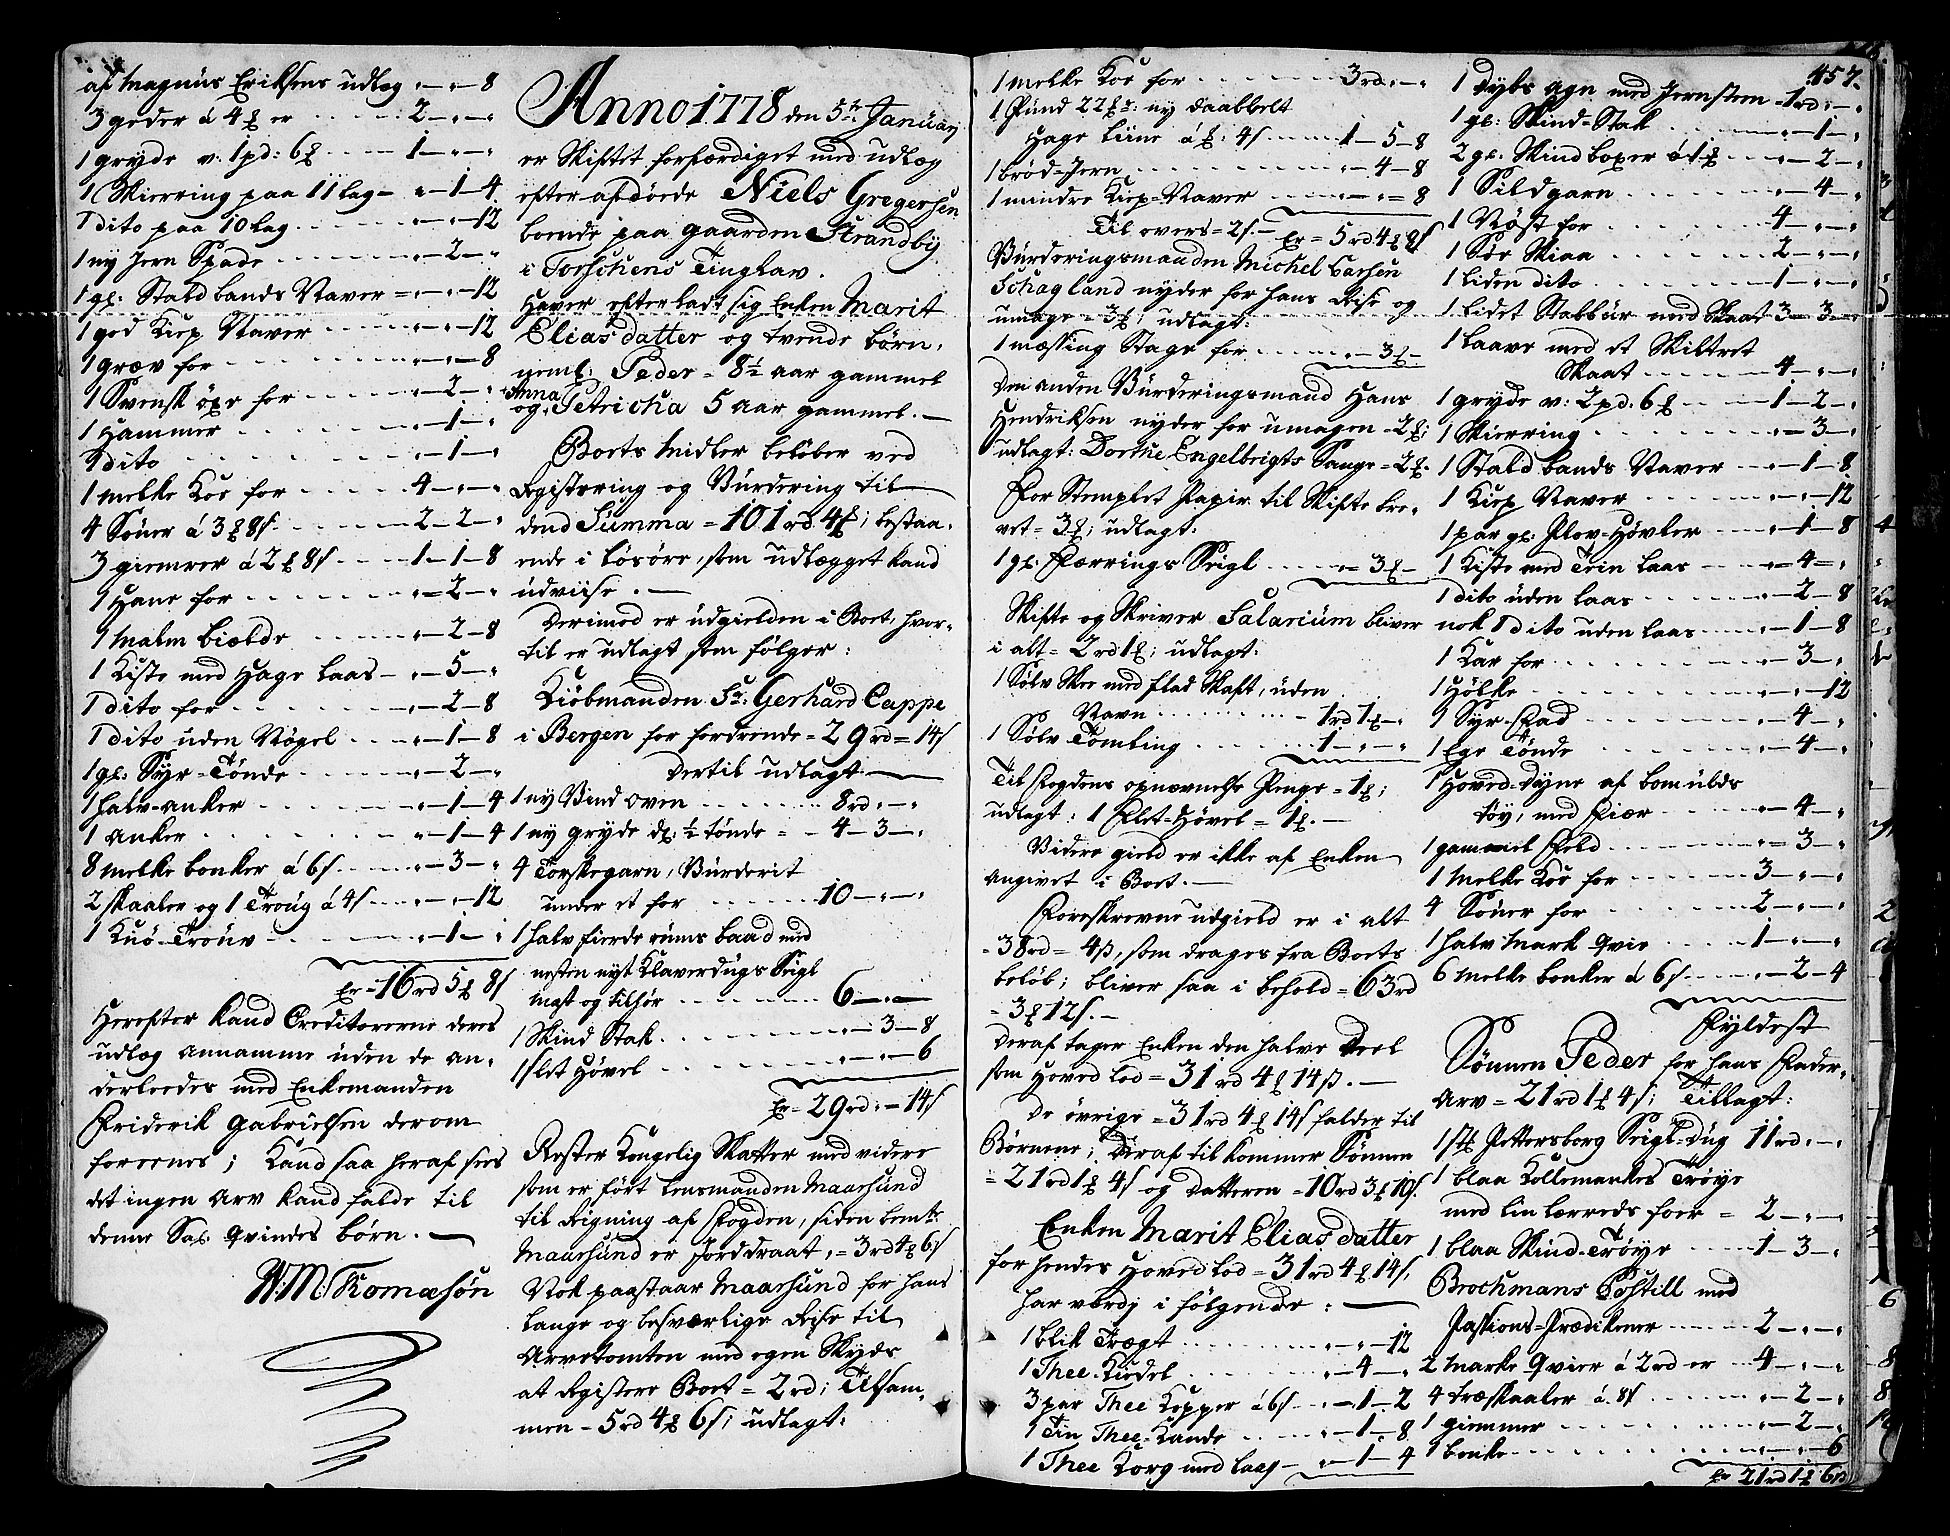 af Magnus Eriksens udlæg „ — „ — 8
3 geder á 4 ₰ er 2 — „ — „
1 gryde v: 1 pd: 6 ₰ 1 — „ — „
1 Skierring paa 11 lag „ — 1 — 4
1 dito paa 10 lag „ — „ — 12
1 ny Jern Spade „ — 2 — „
1 gl: Stald bands Naver „ — „ — 12
1 god Kiep Naver „ — „ — 12
1 græv for „ — „ — 8
1 Svensk øxe for „ — 2 — „
1 Hammer „ — 1 — „
1 dito „ — 1 — „
1 Melke Koe for 4 — „ — „
4 Søuer á 3 ₰ 8 s 2 — 2 — „
3 giemrer á 2 ₰ 8 s 1 — 1 — 8
1 Hane for „ — 2 — „
1 Malm bielde „ — 2 — 8
1 Kiste med Hage laas „ — 5 — „
1 dito for „ — 2 — 8
1 dito uden Nøgel „ — 1 — 8
1 gl: Syr-Tønde „ — 2 — „
1 halv-anker „ — 1 — 4
1 anker „ — 1 — 4
8 Melke bonker á 6 s „ — 3 — „
2 skaaler og 1 Troug á 4 s „ — „ — 12
1 Knø-Trouv „ — 1 — „
Er = 16 rd 5 ₰ 8 s
Herefter kand Creditorerne deres
udlæg annamme uden de an-
derleedes med Enkemanden
Friderik Gabrielsen derom
foreenes; Kand saa heraf sees
det ingen Arv kand falde til
denne Sal. Qvindes børn. —
N: M: Thomæsøn
Anno 1778 den 5te Januarij
er Skiftet forfærdiget med udlæg
efter afdøde Niels Gregersen
boende paa gaarden Strandbÿ
i Torschens Tinglav.
Haver efterladt sig Enken Marit
Elias datter og tvende børn,
neml: Peder = 8 ½ aar gammel
Anna
og Petricha 5 aar gammel. —
Boets Midler beløber ved
Registering og Vurdering til
dend Summa = 101 rd 4 ₰; bestaa-
ende i løsøre, som udlægget kand
udviise. —
Derimod er udgielden i Boet, hvor-
til er udlagt som følger:
Kiøbmanden Sr: Gerhard Cappe
i Bergen for fordrende = 29 rd = 14 s
dertil udlagt
1 ny Vind Oven 8 rd „ — „
1 ny gryde dl: ½ tønde 4 — 3 — „
4 Torskegarn, Vurderit
under et for 10 — „ — „
1 halv fierde rums baad med
nesten nyt Klaverdugs Seigl
Mast og tilhør 6 — „ —
1 Skind Stak „ — 3 — 8
1 slet Høvel „ — „ — 6
Er = 29 rd „ — 14 s
Rester Kongelig Skatter med videre
som er ført Lensmanden Maarsund
til Reigning af Fogden, siden bemte:
Maarsund er Jorddraat, = 3 rd 4 ₰ 6 s
Nok paastaar Maarsund for hans
lange og besværlige Reise til
Arvetomten med egen Skyds
at Registere Boet = 2 rd; Tilsam-
men = 5 rd 4 ₰ 6 s; udlagt:
1 Melke Koe for 3 rd „ — „
1 Pund 22 ₰r: ny daabbelt
Hage liine á ₰: 4 s 1 — 5 — 8
1 brød-Jern „ — 4 — 8
1 mindre Kiep-Naver „ — „ — 8
Til overs = 2 s — Er = 5 rd 4 ₰ 8 s
Vurderingsmanden Michel Larsen
Schagland nyder for hans Reise og
umage = 3 ₰; udlagt:
1 Mæssing Stage for „ — 3 ₰ —
Den anden Vurderingsmand Hans
Hendriksen nyder for umagen = 2 ₰;
udlagt: Dorthe Engelbrigts Sange = 2 ₰.
For Stemplet Papir til Skifte bre-
vet = 3 ₰; udlagt:
1 gl: Færrings Seigl „ = 3 ₰ —
Skifte og Skriver Salarium bliver
i alt = 2 rd 1 ₰; udlagt:
1 Sølv Skee med flad Skaft, uden
Navn 1 rd 1 ₰ — „
1 Sølv Tomling 1 — „ — „
Til Fogdens opnævnelse Penge = 1 ₰;
udlagt: 1 Slet-Høvel = 1 ₰. —
Videre gield er ikke af Enken
angivet i Boet. —
Foreskrevne udgield er i alt
= 38 rd = 4 ß, som drages fra Boets
beløb; bliver saa i behold = 63 rd
= 3 ₰ 12 s. —
Deraf tager Enken den halve Deel
som Hoved lod = 31 rd 4 ₰ 14 ß. —
De øvrige = 31 rd 4 ₰ 14 s falder til
Børnene; Deraf til kommer Sønnen
= 21 rd 1 ₰ 4 s og Datteren = 10 rd 3 ₰ 10 s.
Enken Marit Elias datter
for hendes Hoved lod = 31 rd 4 ₰ 14 s,
har værdj i følgende:
1 blik Tregt „ — „ — 12
1 Thee-Kiedel „ — 4 — „
3 par Thee Kopper á 6 s „ — 1 — 2
1 Tin Thee-Kande „ — 1 — 8
1 Thee Korg med laas „ — 1 — 4
457.
1 dybs agn med Jernsteen 1 rd „ — „
1 gl: Skind-Stak „ — 1 — „
2 gl: Skindboxer á 1 ₰ „ — 2 — „
1 Sildgarn „ — 4 — „
1 Nøst for 4 — „ — „
1 Søe Skiaa 2 — „ — „
1 liden dito 1 — „ — „
1 lidet Stabbur med Skaat 3 — 3 — „
1 laave med et Skiltret
Skaat 4 — „ — „
1 gryde v: 2 pd: 6 ₰ 1 — 2 — „
1 Skierring „ = 3 — „
1 Stald bands Naver „ — 1 — 8
1 Kiep Naver „ — „ — 12
1 par gl: Plov-Høvler „ — 1 — 8
1 Kiste med Trin laas „ — 4 — „
1 dito uden laas „ — 2 — 8
nok 1 dito uden laas „ — 1 — 8
1 Kar for „ — 3 — „
1 Hølke „ — „ — 12
1 Syr-Fad „ — 4 — „
1 Ege Tønde „ — 4 — „
1 Hoved-dyne af bomulds
tøy, med Fiær „ — 4 — „
1 gammel Feld „ — 3 — „
1 Melke Koe for 3 — „ — „
4 Søuer for 2 — „ — „
1 halv Mark Qvie 1 — „ — „
6 Melke bonker á 6 s „ — 2 — 4
Fyldest
Sønnen Peder for hans Fader-
Arv = 21 rd 1 ₰ 4 s; Tillagt:
1 stk Pettersborg Seigl-dug 11 rd „ — „
1 blaa Kallemankes Trøye
med lin lærreds foer = 2 — „ — „
1 blaa Skind-Trøye 1 — 3 — „
Brochmans Postill med
Passions-Prædikener 2 — „ — „
2 Marke Qvier á 2 rd er 4 — „ — „
4 træskaaler á 8 s „ — 2 — „
1 giemmer „ — 2 — „
1 bonke „ — „ — 6
Er 21 rd 1 ₰ 6 s